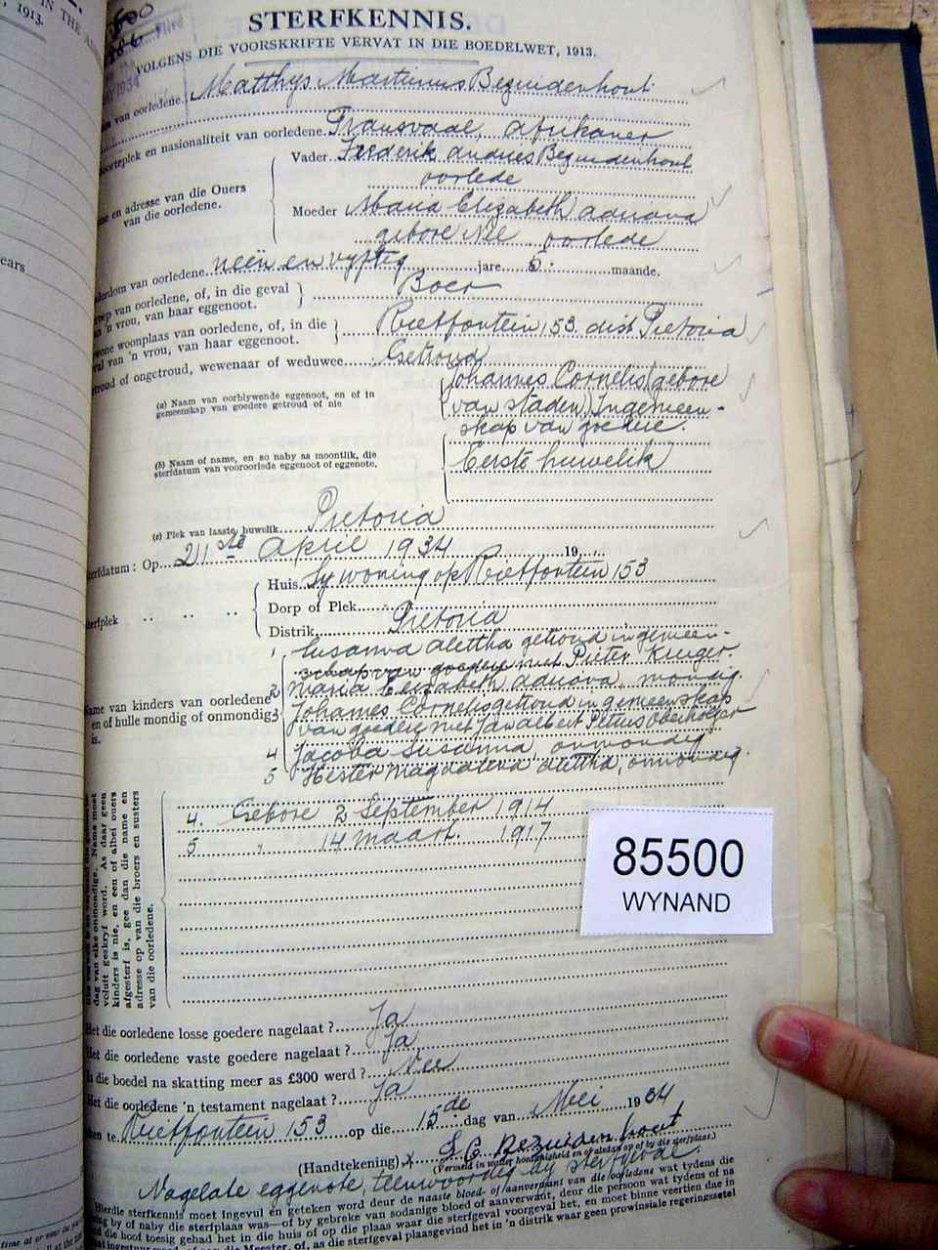 1913.
IN THE
STERFKENNIS.
VOLGENS DIE VOORSKRIFTE VERVAT IN DIE BOEDELWET, 1913.
van oorledene. Matthys Martinus Bezuidenhout
en nasionaliteit van oorledene. Transvaal, Afrikaner
Vader Frederik Andries Bezuidenhout
oorlede
en adresse van die Ouers
van die oorledene.
Moeder Maria Elizabeth Adriana
gebore Nel oorlede
van oorledene. neën en vyftig jare. 5. maande.
van oorledene, of, in die geval
'n vrou, van haar eggenoot. Boer
woonplaas van oorledene, of, in die
van 'n vrou, van haar eggenoot. Rietfontein 153 dist Pretoria
of ongetroud, wewenaar of weduwee. Getroud
(a) Naam van oorblywende eggenoot, en of in
gemeenskap van goedere getroud of nie
Johannes Cornelis (gebore
van Staden) Ingemeen-
skap van goedere.
(b) Naam of name, en so naby as moontlik, die
sterfdatum van vooroorlede eggenoot of eggenote.
Eerste huwelik
(c) Plek van laaste huwelik Pretoria
Op 21ste April 1934 19
Huis Sy woning op Rietfontein 153
Dorp of Plek
Distrik Pretoria
1 Susanna Alettha getroud in gemeen-
schap van goedere met Pieter Kruger.
2 Maria Elizabeth Adriana, mondig
Name van kinders van oorledene
en of hulle mondig of onmondig
is.
3 Johannes Cornelis getroud in gemeenskap
van goedere met Jan Albert Petrus Oberholzer
4 Jacoba Susanna, onmondig
5 Hester Magdalena Alettha, onmondig
4. Gebore 2 September 1914
5 " 14 Maart 1917
dag van elke onmondige. Name moet
voluit geskryf word. As daar geen
kinders is nie, en een of albei ouers
afgesterf is, gee dan die name en
adresse op van die broers en susters
van die oorledene.
85500
WYNAND
Het die oorledene losse goedere nagelaat? Ja
Het die oorledene vaste goedere nagelaat? Ja
Is die boedel na skatting meer as £300 werd? Nee
Het die oorledene 'n testament nagelaat? Ja
te Rietfontein 153 op die 15de dag van Mei 1934
(Handtekening) x J. C. Bezuidenhout
Nagelate eggenote, teenwoordig by sterfgeval.
Hierdie sterfkennis moet ingevul en geteken word deur die naaste bloed- of aanverwant van die oorledene wat tydens die
by of naby die sterfplaas was—of by gebreke van sodanige bloed of aanverwant, deur die persoon wat tydens of na
die hoof toesig gehad het in die huis of op die plaas waar die sterfgeval voorgeval het, en moet binne veertien dae in
of, as die sterfgeval plaasgevind het in 'n distrik waar geen